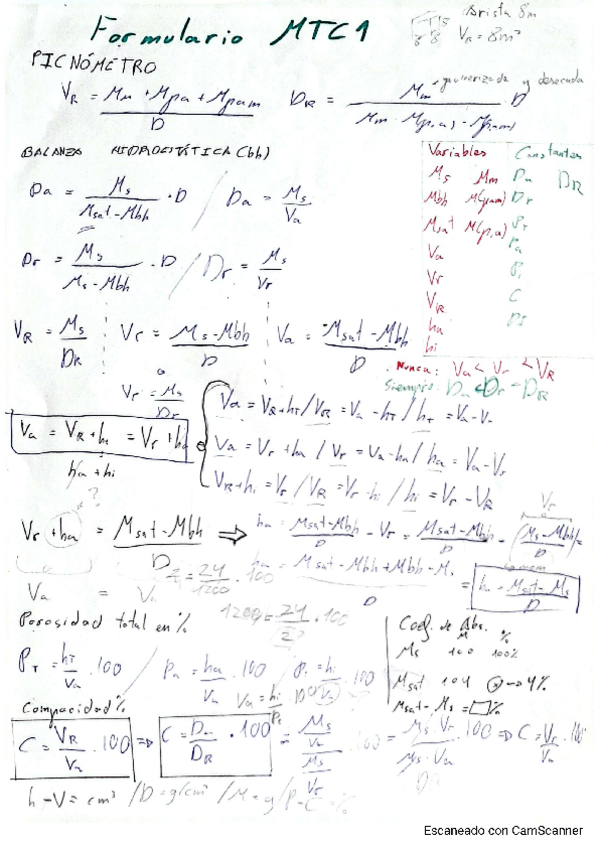 Formulario MTC1
Arista 8m
V_R = 8m³
PICNÓMETRO
V_R = (Mm + Mpa + Mpam) / D
D_R = Mm / (Mm - M(p,a) - M(pam)) · D
pulverizada y desecada
BALANZA HIDROSTÁTICA (bh)
Da = Ms / (Msat - Mbh) · D / Da = Ms / Va
Dr = Ms / (Ms - Mbh) · D / Dr = Ms / Vr
Variables Constantes
Ms Mm Da D_R
Mbh M(pam) Dr
Msat M(p,a) P_T
Va Pa
Vr Pi
V_R C
ha
hi
V_R = Ms / D_R
Vr = (Ms - Mbh) / D
Va = (Msat - Mbh) / D
Nunca: Va < Vr < V_R
Siempre: Da < Dr < D_R
o
Vr = Ms / Dr
Va = V_R + h_T = Vr + ha
ha + hi
Va = V_R + h_T / V_R = Va - h_T / h_T = Va - V_R
Va = Vr + ha / Vr = Va - ha / ha = Va - Vr
V_R + hi = Vr / V_R = Vr - hi / hi = Vr - V_R
?
Vr + ha = (Msat - Mbh) / D ⇒ ha = (Msat - Mbh) / D - Vr = (Msat - Mbh) / D - (Ms - Mbh) / D =
Vr
ha = (Msat - Mbh + Mbh - Ms) / D = ha = (Msat - Ms) / D
Va = Va
= 24 / 1200 · 100
1200 = 24 / ? · 100
Porosidad total en %
P_T = h_T / Va · 100 / Pa = ha / Va · 100 / Pi = hi / Va · 100
Va = hi / Pi · 100
Coef. de Abs.
M %
Ms 100 100%
Msat 104 → 4%
Msat - Ms =
Compacidad %
C = V_R / Va · 100 ⇒ C = Da / D_R · 100 = (Ms / Va) / (Ms / Vr) · 100 = (Ms · Vr) / (Ms · Va) · 100 ⇒ C = Vr / Va · 100
h - V = cm³ / D = g/cm³ / M = g / P - C = %
Escaneado con CamScanner